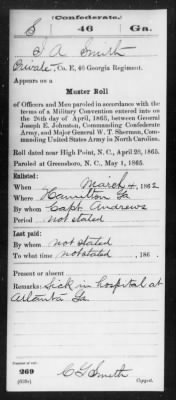 (Confederate.)
S 46 Ga.
S A Smith
Private, Co. E, 46 Georgia Regiment.
Appears on a
Muster Roll
of Officers and Men paroled in accordance with the
terms of a Military Convention entered into on
the 26th day of April, 1865, between General
Joseph E. Johnston, Commanding Confederate
Army, and Major General W. T. Sherman, Com-
manding United States Army in North Carolina.
Roll dated near High Point, N. C., April 28, 1865.
Paroled at Greensboro, N. C., May 1, 1865.
Enlisted:
When March 4, 1862
Where Hamilton Ga
By whom Capt Andrews
Period not stated
Last paid:
By whom not stated
To what time not stated, 186 .
Present or absent
Remarks: Sick in hospital at
Atlanta Ga.
Number of roll:
269
(639c)
C S Smith
Copyist.